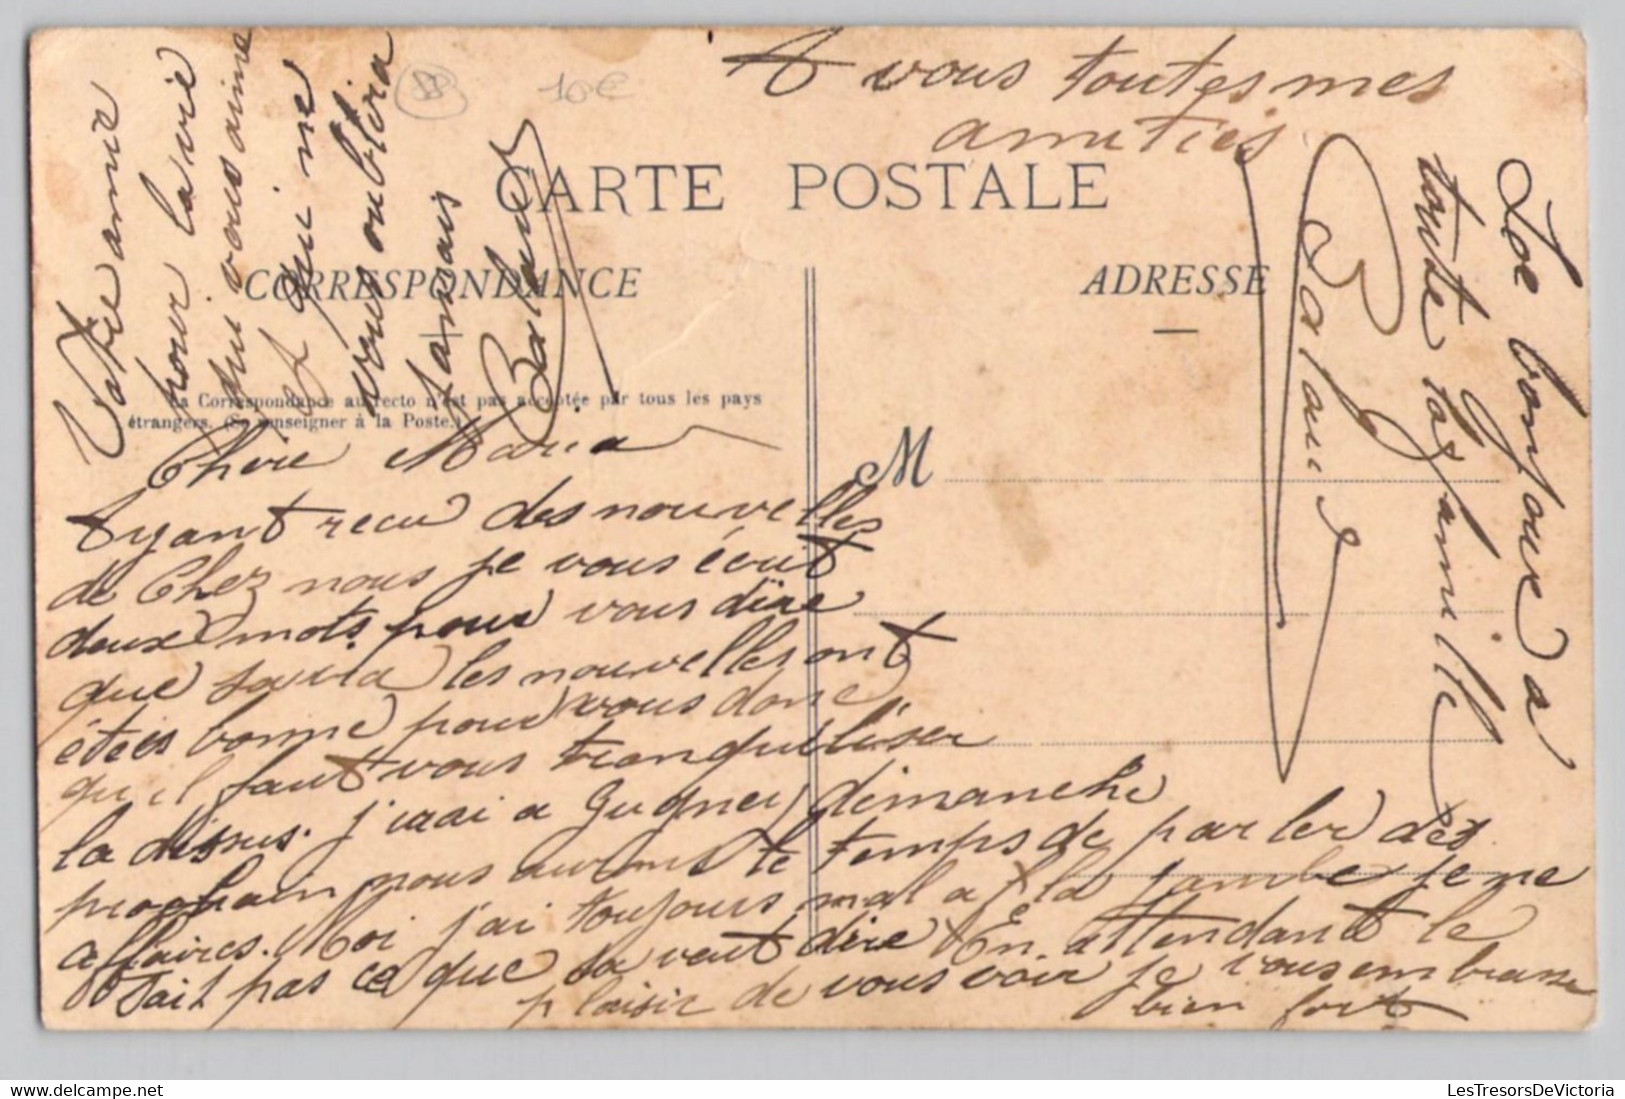 A vous toutes mes
amitiés
CARTE POSTALE
CORRESPONDANCE
ADRESSE
La Correspondance au recto n'est pas acceptée par tous les pays
étrangers. (Se renseigner à la Poste.)
M
Chère Maria
Ayant recu des nouvelles
de Chez nous je vous écrit
deux mots pour vous dire
que les nouvelles ont
étées bonne pour vous donc
qu'il faut vous tranquiliser
la dessus. j'irai a Gugney dimanche
prochain nous aurons le temps de parler des
affaires. Moi j'ai toujours mal a la jambe je ne
sait pas ce que sa veut dire En attendant le
plaisir de vous voir je vous embrasse
bien fort
Votre amie
pour la vie
qui vous aime
et qui ne
vous oublira
Jamais
Le bonjour a
toute la famille
10€
LesTresorsDeVictoria.com